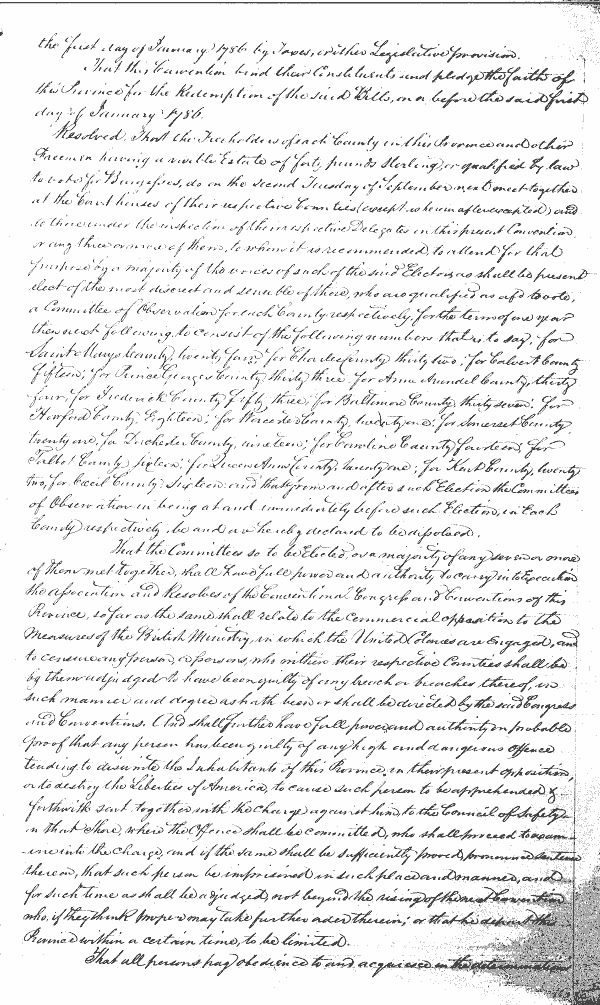 the first day of January 1786 by Taxes, or other Legislative provision.
That this Convention bind their Constituents and pledge the faith of
this Province for the Redemption of the said Bills, on or before the said first
day of January 1786.
Resolved That the Freeholders of each County in this Province and other
Freemen having a visible Estate of forty pounds sterling, or qualified by law
to vote for Burgesses, do on the second Tuesday of September next meet together
at the Court houses of their respective Counties (except wherein after excepted) and
to those under the inspection of their respective Delegates in this present Convention
or any three or more of them, to whom it is recommended, to attend for that
purpose by a majority of the voices of such of the said Electors as shall be present
elect of the most discreet and sensible of those, who are qualified as afd to vote,
a Committee of Observation for such County respectively, for the term of one year
then next following, to consist of the following numbers that is to say; for
Saint Marys County, twenty four; for Charles County thirty two; for Calvert County
fifteen; for Prince Georges County thirty three. for Anne Arundel County, thirty
four; for Frederick County Fifty three; for Baltimore County thirty seven; for
Harford County, Eighteen; for Worcester County, twenty one; for Somerset County,
twenty one, for Dorchester County, nineteen; for Caroline County fourteen, for
Talbot County Sixteen; for Queen Anns County, twenty one; for Kent County, twenty
two, for Cecil County Sixteen and that from and after such Election the Committees
of Observation in being at and immediately before such Election, in Each
County respectively, be and are hereby declared to be dissolved.
That the Committees so to be Elected, or a majority of any seven or more
of them met together, shall have full power and authority, to carry into Execution
the association and Resolves of the Continental Congress and Conventions of this
Province, so far as the same shall relate to the Commercial opposition to the
Measures of the British Ministry, in which the United Colonies are Engaged, and
to censure any person, or persons, who within their respective Counties shall be
by them adjudged to have been guilty of any breach or breaches thereof, in
such manner and degree as hath been or shall be directed by the said Congress
and Conventions. And shall further have full power and authority on probable
proof that any person has been guilty of any high and dangerous Offence
tending to disunite the Inhabitants of this Province, in their present opposition,
or to destroy the Liberties of America, to cause such person to be apprehended &
forthwith sent together with the Charge against him to the Council of Safety
on that Shore, where the Offence shall be committed, who shall proceed to exam-
-ine into the Charge, and if the same shall be sufficiently proved, pronounce sentence
thereon, that such person be imprisoned in such place and manner, and
for such time as shall be adjudged, not beyond the rising of the next Convention
who, if they think proper may take further order therein; or that he depart the
Province within a certain time, to be limited.
That all persons pay obedience to and acquiesce in the determinations